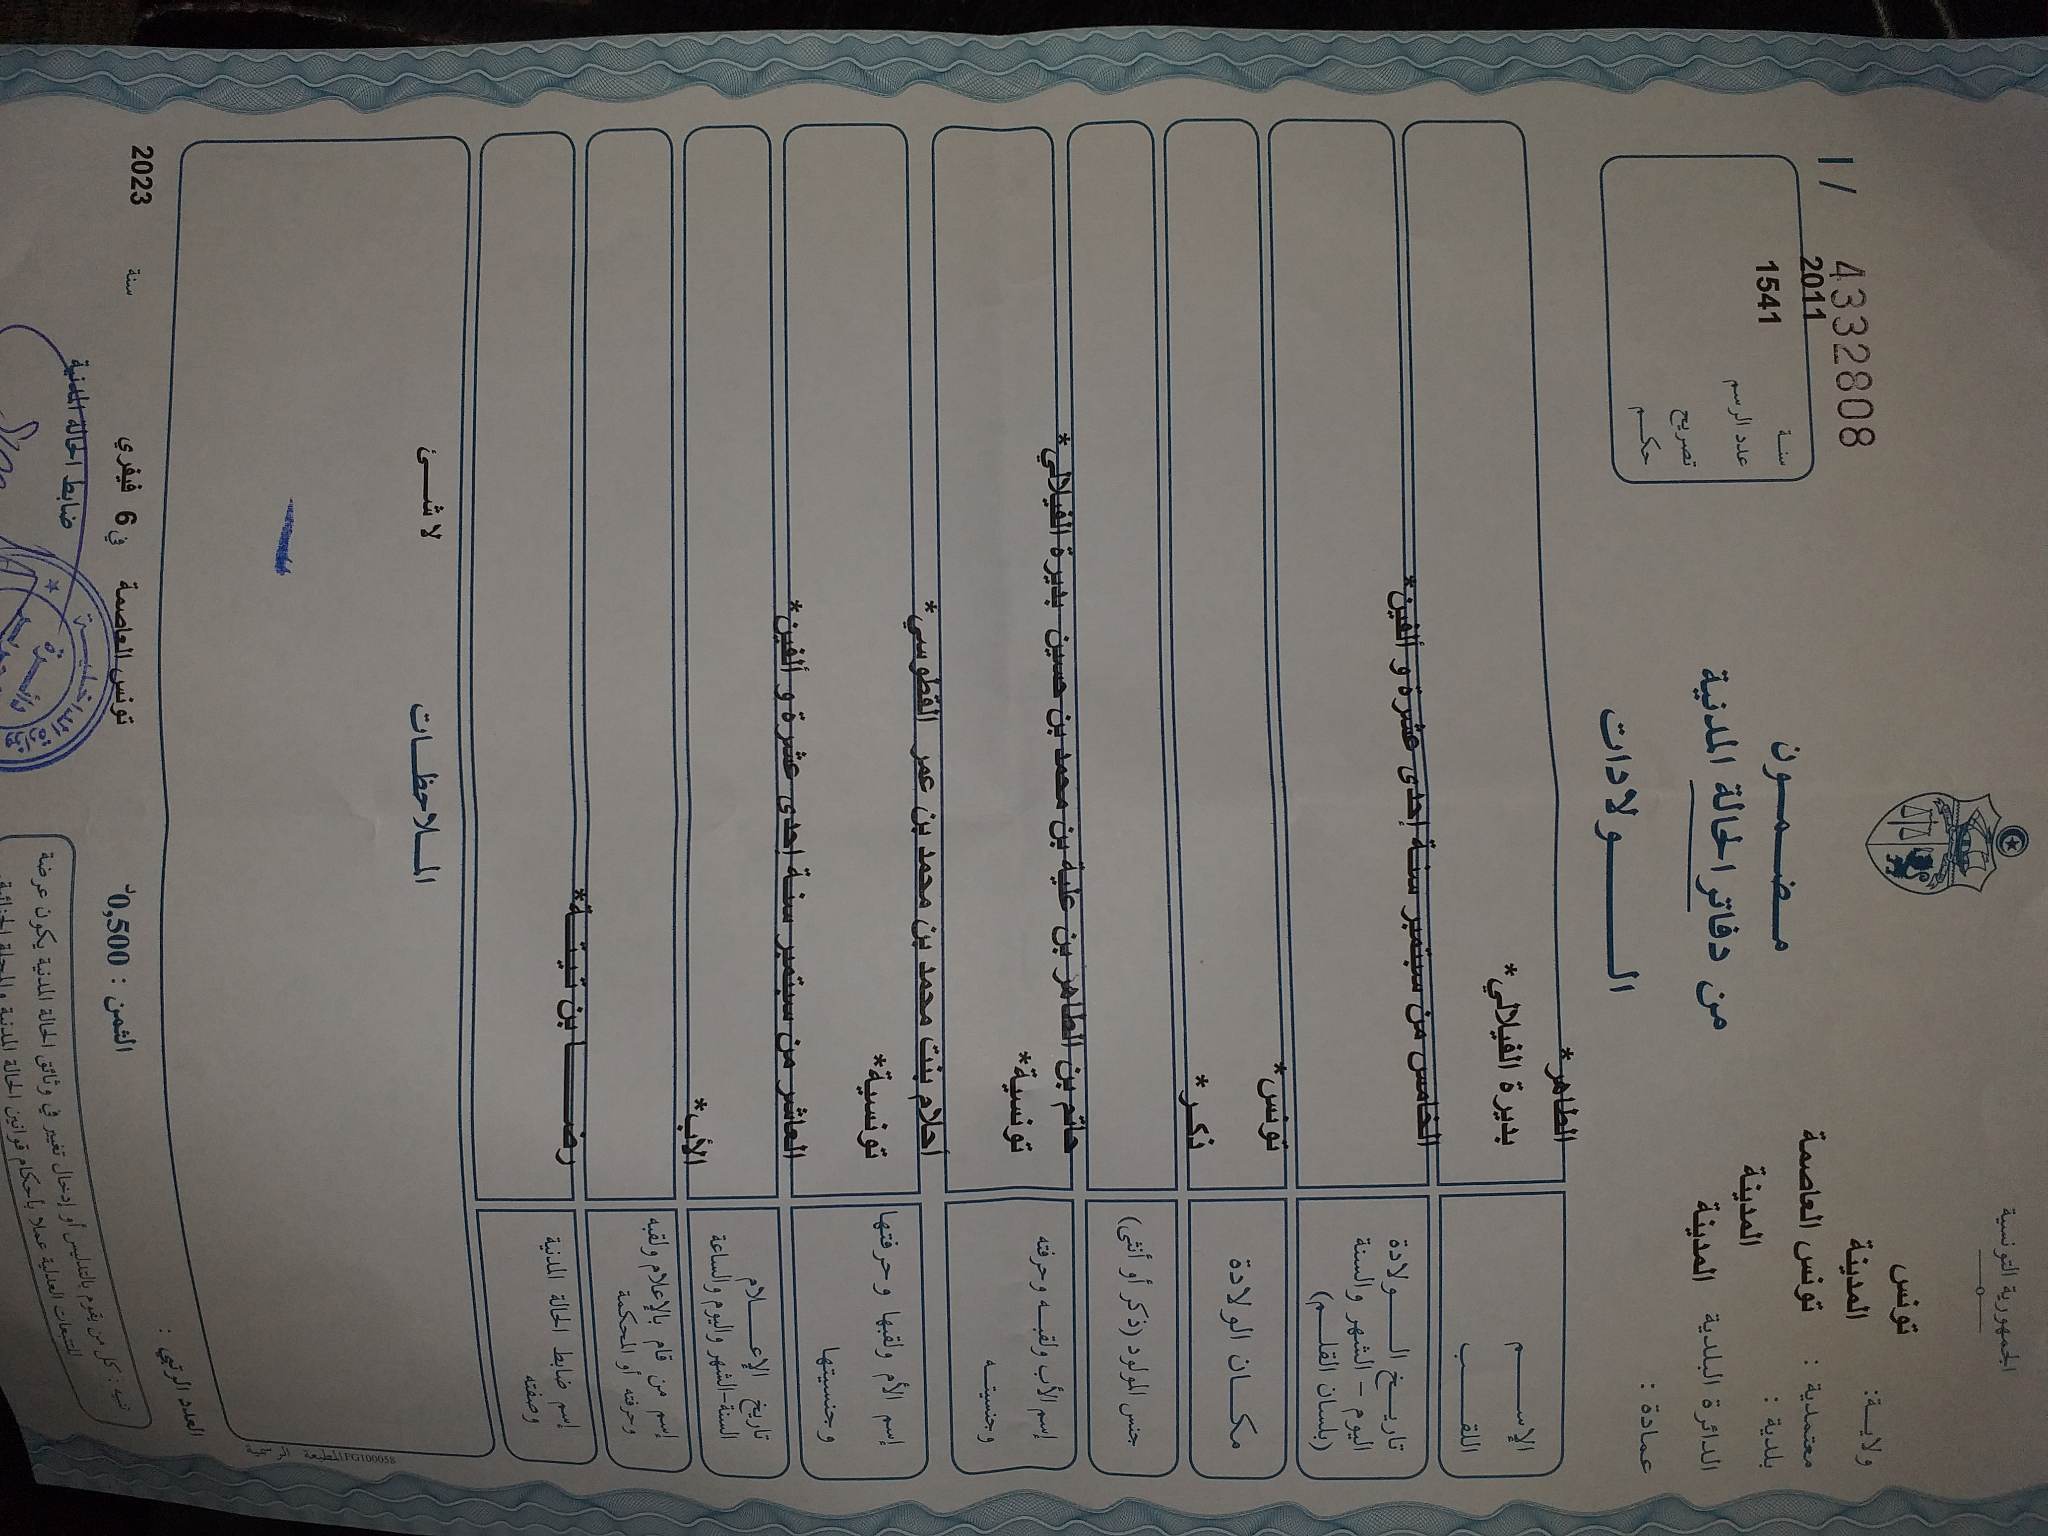 الجمهورية التونسية
ولايـة: تونس
معتمدية : المدينة
بلدية : تونس العاصمة
الدائرة البلدية المدينة
عمادة : المدينة
I / 4332808
سنـة 2011
عدد الرسم 1541
تصريح
حكـم
مـضـمـون
من دفاتر الحالة المدنية
الـــولادات
الإســـم الطاهر*
اللقـــب بديرة الفيلالي*
تاريـخ الـــولادة الخامس من سبتمبر سنـة إحدى عشرة و ألفين*
اليوم - الشهر والسنة
(بلسان القلـم)
مكـان الولادة تونس*
جنس المولود (ذكر أو أنثى) ذكر*
إسم الأب ولقبـه وحرفته حاتم بن الطاهر بن علية بن محمد بن حسين بديرة الفيلالي*
وجنسيتـه تونسية*
إسم الأم ولقبها وحرفتها أحلام بنت محمد بن محمد بن عمر القطوسي*
وجنسيتها تونسية*
تاريخ الإعـــلام العاشر من سبتمبر سنـة إحدى عشرة و ألفين*
السنة-الشهر واليوم والساعة
إسم من قام بالإعلام ولقبه الأب*
وحرفته أو المحكمة
إسم ضابط الحالة المدنية رضــا بن تيتـة*
وصفته
المـلاحظـات
لا شــئ
FG100058 المطبعة الرسمية
العدد الرتبي :
الثمن : 0,500د
تونس العاصمة في 6 فيفري سنة 2023
ضابط الحالة المدنية
تنبيه : كل من يقوم بالتدليس أو إدخال تغيير في وثائق الحالة المدنية يكون عرضة
للتتبعات العدلية عملا بأحكام قوانين الحالة المدنية والمجلة الجنائية.